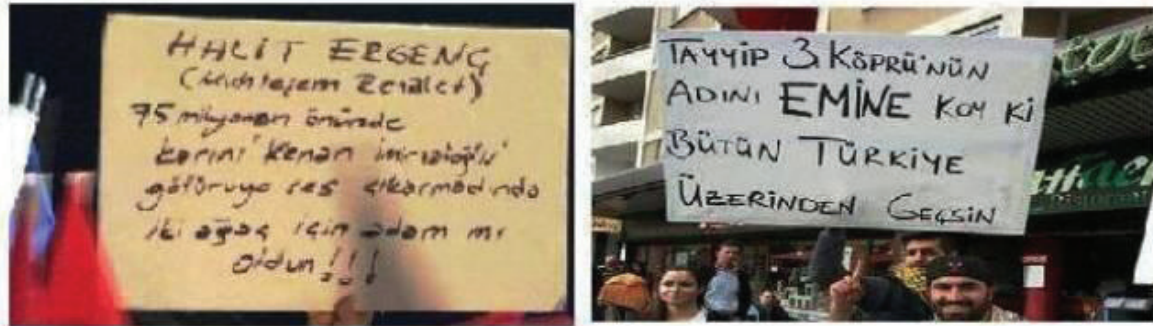 HALİT ERGENÇ
(Muhteşem Rezalet)
75 milyonun önünde
karını Kenan İmirzalıoğlu
götürüyo ses çıkarmadında
iki ağaç için adam mı
oldun!!!
TAYYİP 3. KÖPRÜ'NÜN
ADINI EMİNE KOY Kİ
BÜTÜN TÜRKİYE
ÜZERİNDEN GEÇSİN